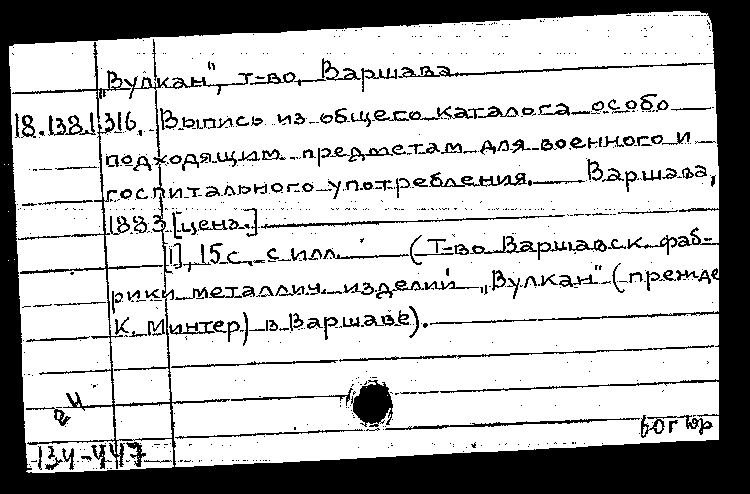 „Вулкан", т-во, Варшава
18.138.1.316. Выпись из общего каталога особо
подходящим предметам для военного и
госпитального употребления. Варшава,
1883 [ценз.]
[1], 15 с. с илл. (Т-во Варшавск. фаб-
рики металлич. изделий „Вулкан" (прежде
К. Минтер) в Варшаве).
134-447